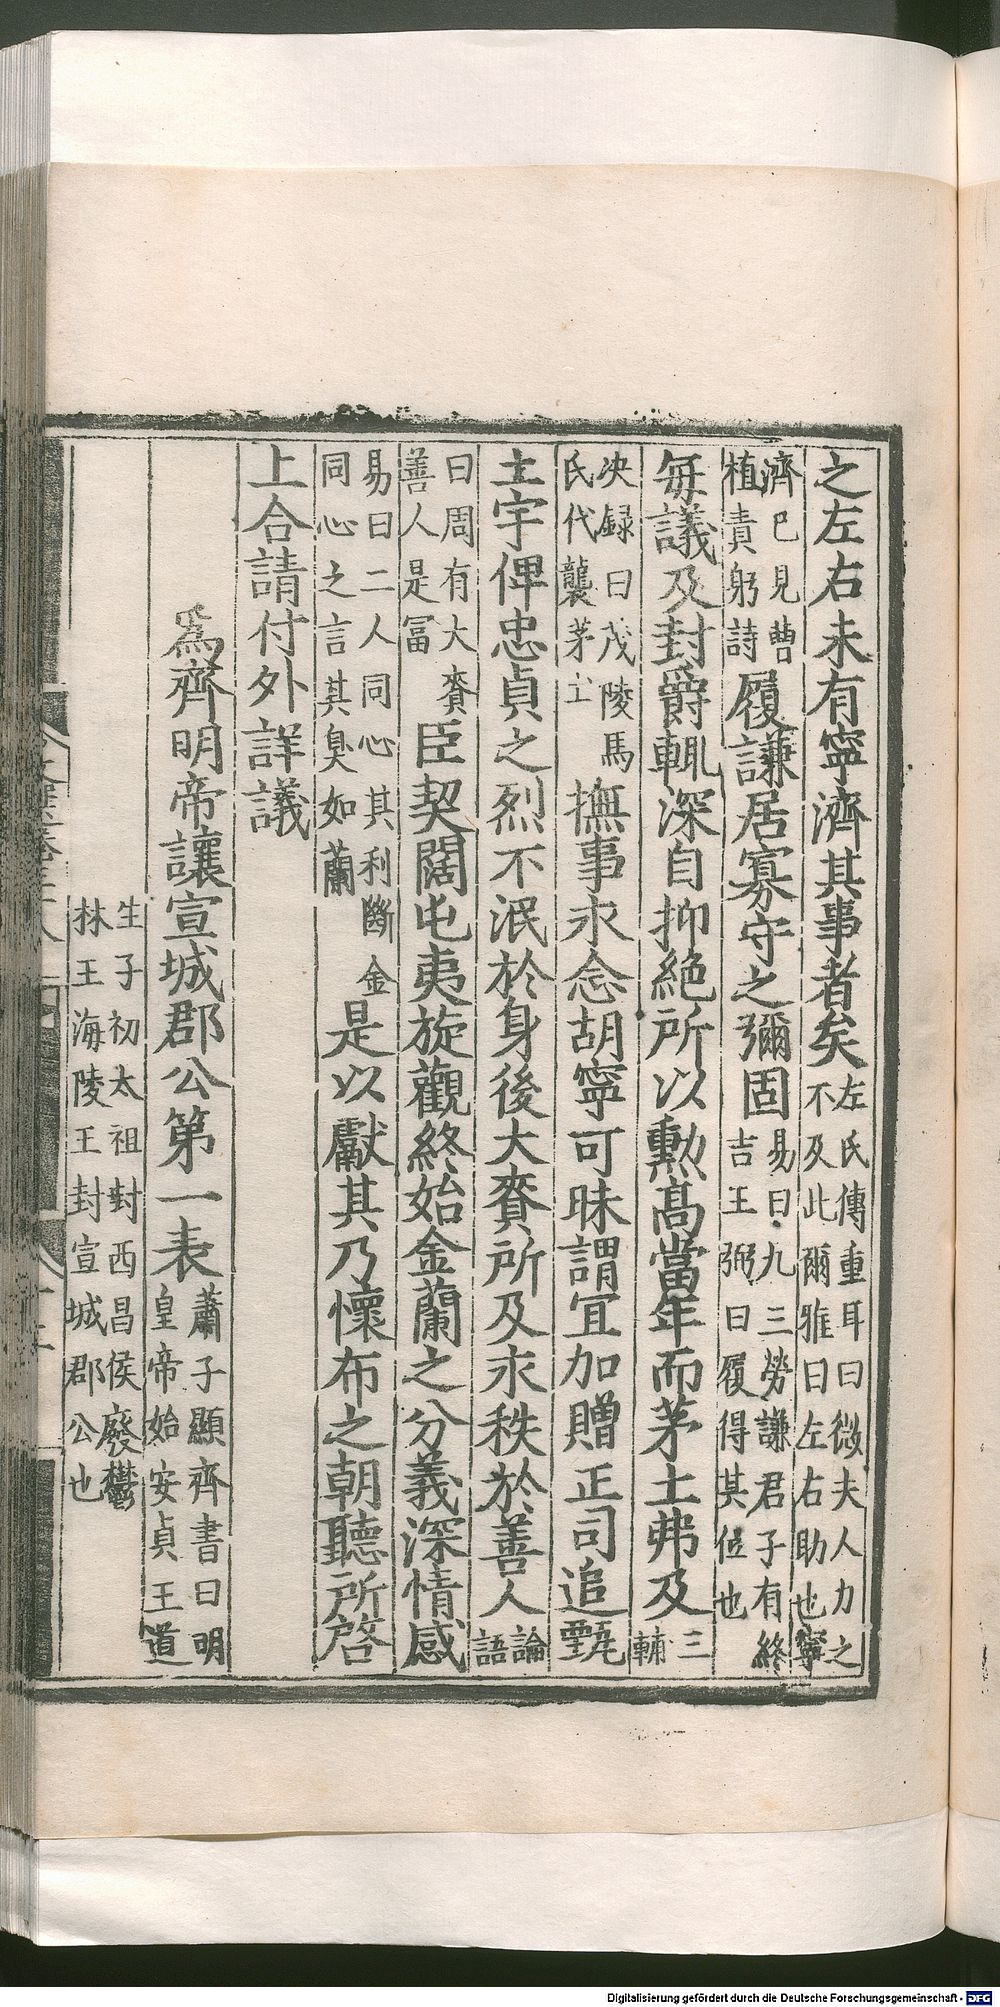 之左右未有寧濟其事者矣左氏傳重耳曰微夫人力之不及此爾雅曰左右助也寧
濟已見曹植責躬詩履謙居寡守之彌固易曰九三勞謙君子有終吉王弼曰履得其位也
每議及封爵輒深自抑絕所以勲高當年而茅土弗及三輔
決録曰茂陵馬氏代襲茅土撫事永念胡寧可昧謂宜加贈正司追甄
土宇俾忠貞之烈不泯於身後大賚所及永秩於善人論語
曰周有大賚善人是冨臣契闊屯夷旋觀終始金蘭之分義深情感
易曰二人同心其利斷金同心之言其臭如蘭是以獻其乃懷布之朝聽所啓
上合請付外詳議
為齊明帝讓宣城郡公第一表蕭子顯齊書曰明皇帝始安貞王道
生子初太祖封西昌侯廢鬱林王海陵王封宣城郡公也
Digitalisierung gefördert durch die Deutsche Forschungsgemeinschaft - DFG